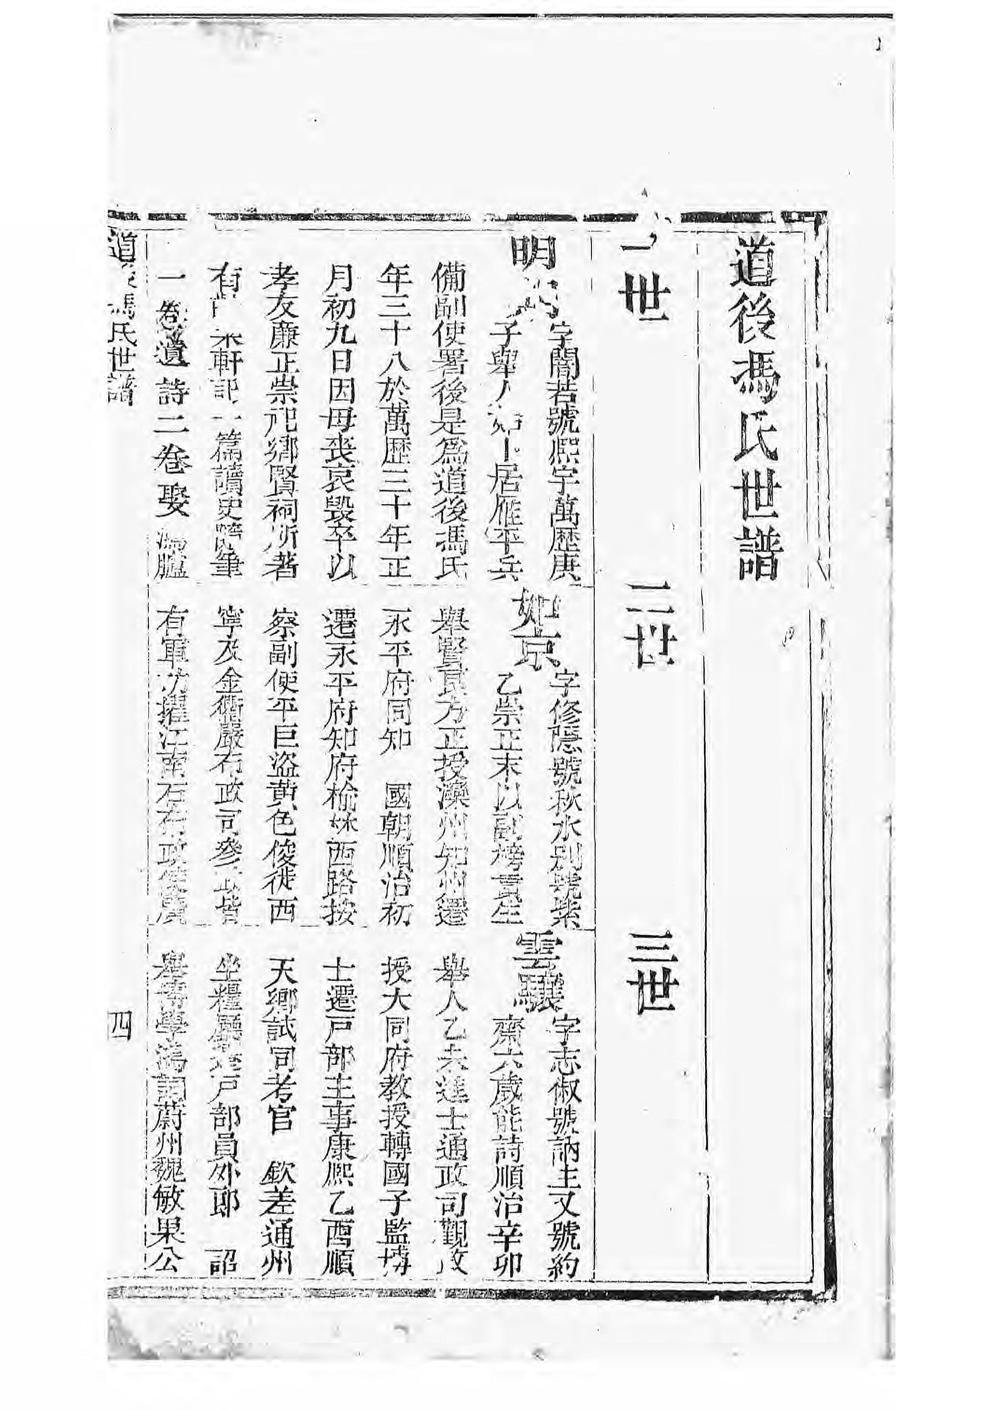 道後馮氏世譜
一世
二世
三世
明
字闇若號熙宇萬歷庚
子舉人 居雁平兵
備副使署後是爲道後馮氏
年三十八於萬歷三十年正
月初九日因母喪哀毀卒以
孝友廉正崇祀鄉賢祠所著
有 軒記一篇讀史隨筆
一卷遺詩二卷娶 盧
如京
字修隱號秋水別號紫
乙崇正末以副榜貢生
舉賢良方正授灤州知州遷
永平府同知 國朝順治初
遷永平府知府榆林西路按
察副使平巨盜黃色俊徙西
寧及金衢嚴布政司參政皆
有軍功擢江南右布政使廣
雲驤
字志俶號訥生又號約
齋六歲能詩順治辛卯
舉人乙未進士通政司觀政
授大同府教授轉國子監博
士遷戶部主事康熙乙酉順
天鄉試同考官 欽差通州
坐糧廳 戶部員外郎 詔
舉博學鴻詞蔚州魏敏果公
道後馮氏世譜
四